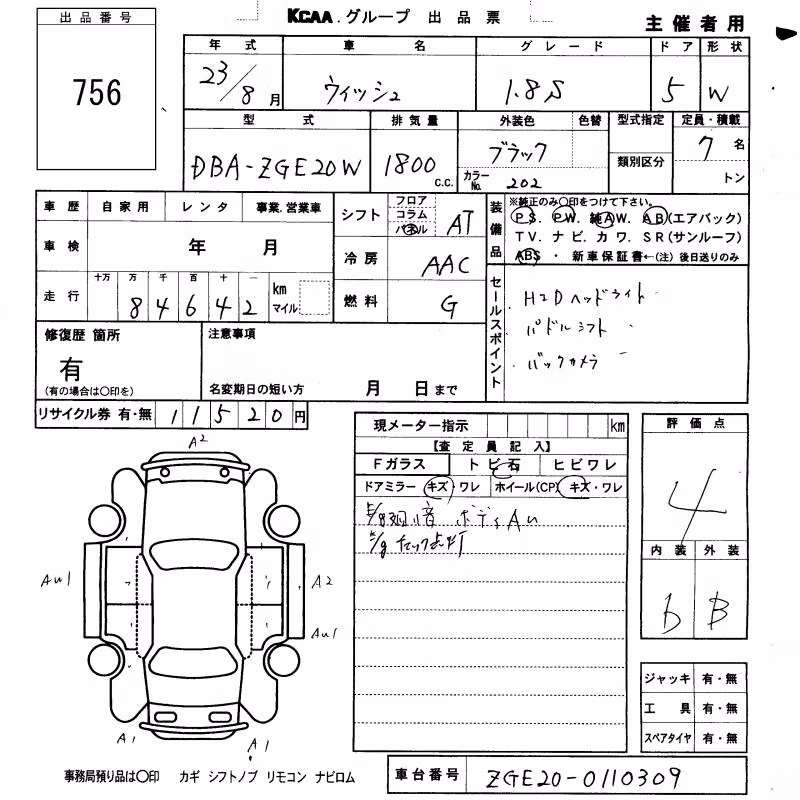 出品番号
756
KCAA.グループ 出品票
主催者用
年式 車名 グレード ドア 形状
23/8月 ウィッシュ 1.8S 5 W
型式 排気量 外装色 色替 型式指定 定員・積載
DBA-ZGE20W 1800 c.c. ブラック 7名
類別区分
カラーNo. 202 トン
車歴 自家用 レンタ 事業.営業車
車検 年 月
走行 十万 万 千 百 十 一
84642 km マイル
シフト フロア コラム パネル AT
冷房 AAC
燃料 G
装備品
※純正のみ〇印をつけて下さい。
P S. P W. 純A W. A B(エアバック)
TV. ナビ. カワ. SR(サンルーフ)
ABS ・ 新車保証書←(注) 後日送りのみ
セールスポイント
HIDヘッドライト
パドルシフト
バックカメラ
修復歴 箇所
有
(有の場合は〇印を)
注意事項
名変期日の短い方 月 日まで
リサイクル券 有・無 11520円
現メーター指示 km
【査定員記入】
Fガラス トビ石 ヒビワレ
ドアミラー キズ・ワレ ホイール(CP) キズ・ワレ
ボディAu
評価点
4
内装 外装
b B
A2
Au1
A2
Au1
A1
A1
ジャッキ 有・無
工具 有・無
スペアタイヤ 有・無
事務局預り品は〇印 カギ シフトノブ リモコン ナビロム
車台番号 ZGE20-0110309